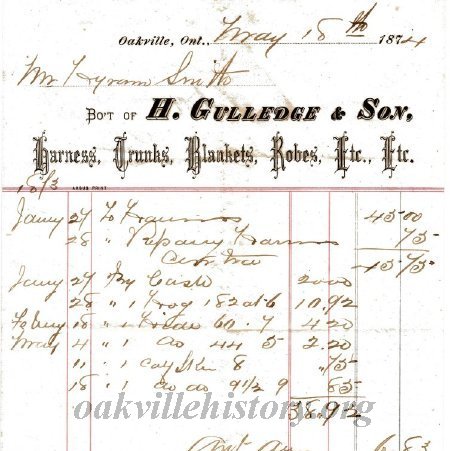 Oakville, Ont., May 18th 1874
Mr Hyram Smith
BO'T OF H. GULLEDGE & SON,
Harness, Trunks, Blankets, Robes, Etc., Etc.
1873
ARGUS PRINT
Jany 27 To Harness 45 00
28 " Repairg Harness 75
Contra 45 75
Jany 27 By Cash 20 00
28 " 1 Hog 182 at 6 10.92
Febury 18 " 1 Hide 60 . 7 4 20
May 4 " 1 do 44 5 2.20
11 " 1 calf Skin 8 " 75
18 " 1 do do 9 1/2 9 85
38.92
oakvillehistory.org
6 83